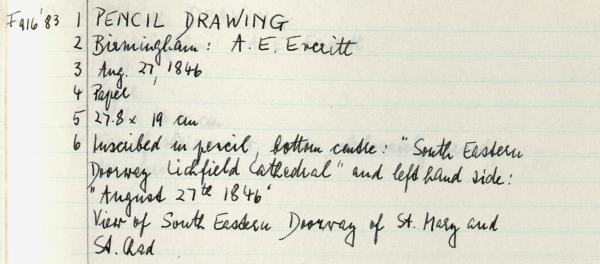 F916'83 1 PENCIL DRAWING
2 Birmingham: A. E. Everitt
3 Aug. 27, 1846
4 Paper
5 27.8 x 19 cm
6 Inscribed in pencil, bottom centre: "South Eastern
Doorway Lichfield Cathedral" and left hand side:
"August 27th 1846"
View of South Eastern Doorway of St. Mary and
St. Chad